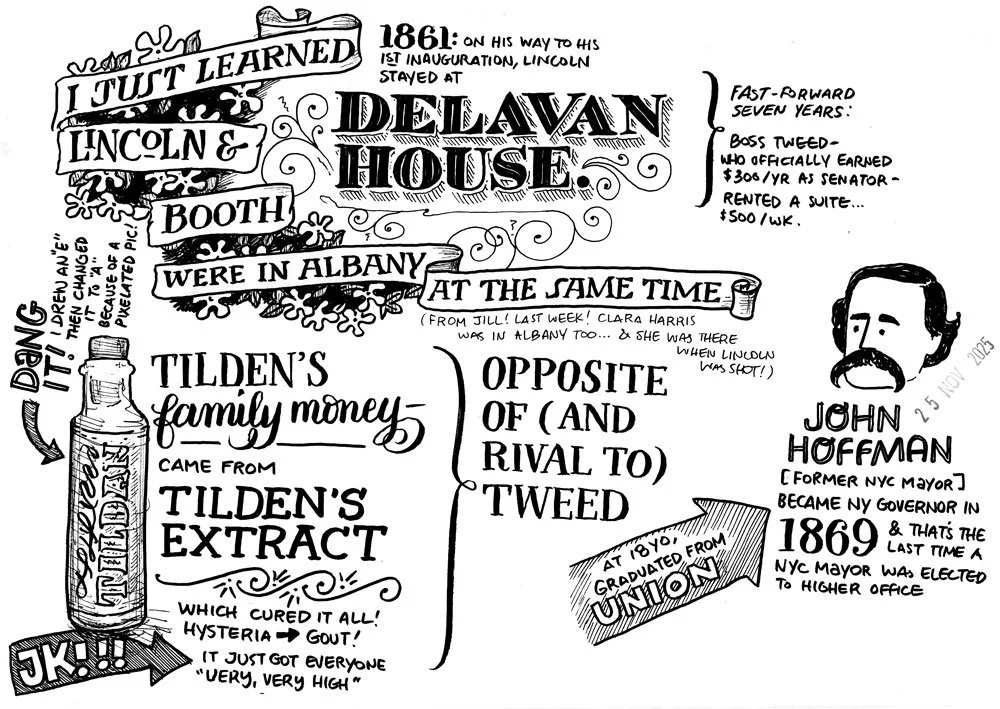 I JUST LEARNED
LINCOLN &
BOOTH
WERE IN ALBANY
AT THE SAME TIME
(FROM JILL! LAST WEEK! CLARA HARRIS
WAS IN ALBANY TOO... & SHE WAS THERE
WHEN LINCOLN
WAS SHOT!)
1861: ON HIS WAY TO HIS
1ST INAUGURATION, LINCOLN
STAYED AT
DELAVAN
HOUSE.
FAST-FORWARD
SEVEN YEARS:
BOSS TWEED-
WHO OFFICIALLY EARNED
$300/YR AS SENATOR-
RENTED A SUITE...
$500/WK.
DANG
IT!!
I DREW AN "E"
THEN CHANGED
IT TO "A"
BECAUSE OF A
PIXELATED PIC!
TILDAN
JK!!!
TILDEN'S
family money-
CAME FROM
TILDEN'S
EXTRACT
WHICH CURED IT ALL!
HYSTERIA → GOUT!
IT JUST GOT EVERYONE
"VERY, VERY HIGH"
OPPOSITE
OF (AND
RIVAL TO)
TWEED
AT 18YO,
GRADUATED FROM
UNION
JOHN
HOFFMAN
[FORMER NYC MAYOR]
BECAME NY GOVERNOR IN
1869 & THAT'S THE
LAST TIME A
NYC MAYOR WAS ELECTED
TO HIGHER OFFICE
25 NOV 2025